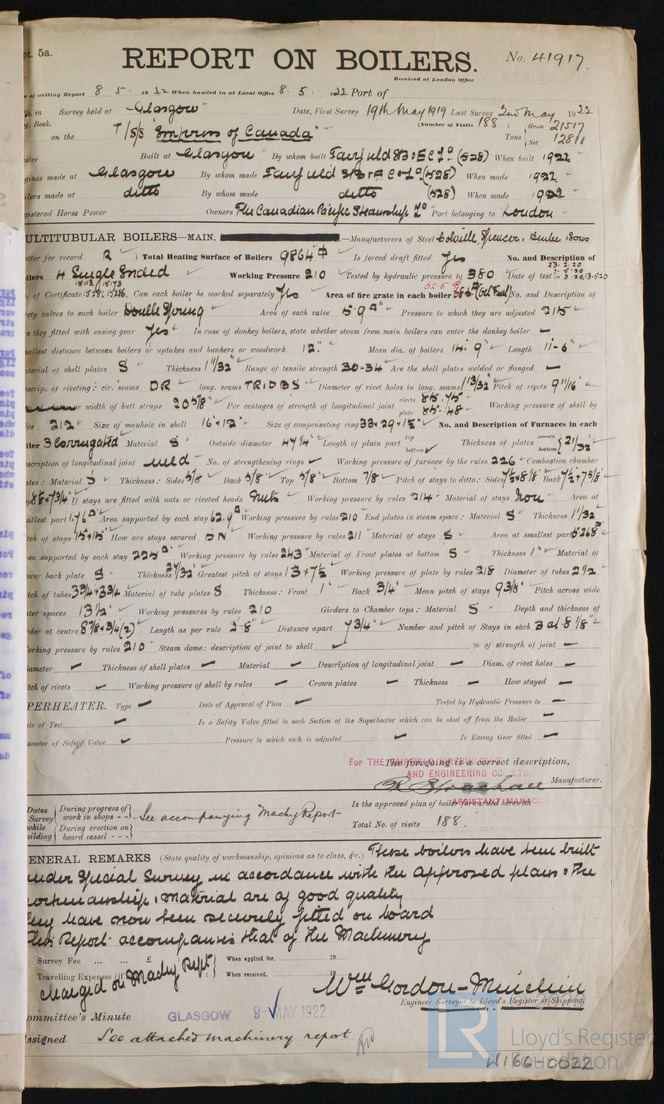 pt. 5a.
REPORT ON BOILERS.
No. 41917.
Received at London Office
of writing Report 8 . 5 . 1922 When handed in at Local Office 8 . 5 . 1922 Port of
in Survey held at Glasgow Date, First Survey 19th May 1919 Last Survey 2nd May 1922
Book. (Number of Visits 188) Gross 21517
on the T/S/S "Empress of Canada" Tons Net 12811
Built at Glasgow By whom built Fairfield S.B. & E. Co. Ld (528) When built 1922
gines made at Glasgow By whom made Fairfield S.B. & E. Co. Ld (528) When made 1922
ilers made at ditto By whom made ditto (528) When made 1922
gistered Horse Power Owners The Canadian Pacific Steamship Ld Port belonging to London
ULTITUBULAR BOILERS—MAIN, —Manufacturers of Steel Colville, Spencer, Beardmore Sons
tter for record R Total Heating Surface of Boilers 9864 Is forced draft fitted Yes No. and Description of
ilers 4 Single Ended Working Pressure 210 Tested by hydraulic pressure to 380 Date of test
of Certificate Can each boiler be worked separately Yes Area of fire grate in each boiler (Oil Fuel) No. and Description of
ety valves to each boiler Double Spring Area of each valve 5.9 Pressure to which they are adjusted 215
e they fitted with easing gear Yes In case of donkey boilers, state whether steam from main boilers can enter the donkey boiler —
allest distance between boilers or uptakes and bunkers or woodwork 12" Mean dia. of boilers 14'-9" Length 11'-6"
terial of shell plates S Thickness 1 11/32 Range of tensile strength 30-34 Are the shell plates welded or flanged —
scrip. of riveting: cir. seams DR long. seams TR.DBS Diameter of rivet holes in long. seams 1 13/32 Pitch of rivets 9 11/16
or width of butt straps 20 5/8 Per centages of strength of longitudinal joint rivets 85.45 plate 85.48 Working pressure of shell by
les 212 Size of manhole in shell 16" x 12" Size of compensating ring 33 x 29 x 1 No. and Description of Furnaces in each
iler 3 Corrugated Material S Outside diameter 47 1/4 Length of plain part top bottom Thickness of plates crown bottom 21/32
scription of longitudinal joint weld No. of strengthening rings Working pressure of furnace by the rules 226 Combustion chamber
ates: Material S Thickness: Sides 5/8 Back 5/8 Top 5/8 Bottom 7/8 Pitch of stays to ditto: Sides 7 1/2 x 8 1/8 Back 7 1/2 x 7 3/8
If stays are fitted with nuts or riveted heads Nuts Working pressure by rules 214 Material of stays Iron Area at
allest part 1.76 Area supported by each stay 62.9 Working pressure by rules 210 End plates in steam space: Material S Thickness 1 1/32
tch of stays 15 x 15 How are stays secured DN Working pressure by rules 211 Material of stays S Area at smallest part 5.268
ea supported by each stay 225 Working pressure by rules 243 Material of Front plates at bottom S Thickness 1" Material of
wer back plate S Thickness 27/32 Greatest pitch of stays 13 x 7 1/2 Working pressure of plate by rules 218 Diameter of tubes 2 1/2
tch of tubes 3 3/4 x 3 3/4 Material of tube plates S Thickness: Front 1" Back 3/4 Mean pitch of stays 9 3/8 Pitch across wide
ter spaces 13 1/2 Working pressures by rules 210 Girders to Chamber tops: Material S Depth and thickness of
der at centre 8 7/8 x 3/4 (2) Length as per rule 2'-8" Distance apart 7 3/4 Number and pitch of Stays in each 3 at 8 1/8
orking pressure by rules 210 Steam dome: description of joint to shell — % of strength of joint —
iameter — Thickness of shell plates — Material — Description of longitudinal joint — Diam. of rivet holes —
tch of rivets — Working pressure of shell by rules — Crown plates — Thickness — How stayed —
PERHEATER. Type — Date of Approval of Plan — Tested by Hydraulic Pressure to —
te of Test — Is a Safety Valve fitted to each Section of the Superheater which can be shut off from the Boiler —
ameter of Safety Valve — Pressure to which each is adjusted — Is Easing Gear fitted —
The foregoing is a correct description,
For THE FAIRFIELD SHIPBUILDING
AND ENGINEERING CO., LTD.
R Strachan Manufacturer.
ASSISTANT MANAGER
Dates Survey while uilding During progress of work in shops - - During erection on board vessel - - - See accompanying Machy Report
Is the approved plan of boiler forwarded herewith
Total No. of visits 188.
ENERAL REMARKS (State quality of workmanship, opinions as to class, &c.) These boilers have been built
under Special Survey in accordance with the approved plans. The
workmanship & material are of good quality
They have now been securely fitted on board
This Report accompanies that of the Machinery
Survey Fee ... ... £ When applied for, 19
Travelling Expenses (if When received, 19
charged on Machy Rept
Wm Gordon-Muichin
Engineer Surveyor to Lloyd's Register of Shipping.
ommittee's Minute GLASGOW 9 - MAY 1922
ssigned See attached machinery report
LR Lloyd's Register
Foundation
W166-0022